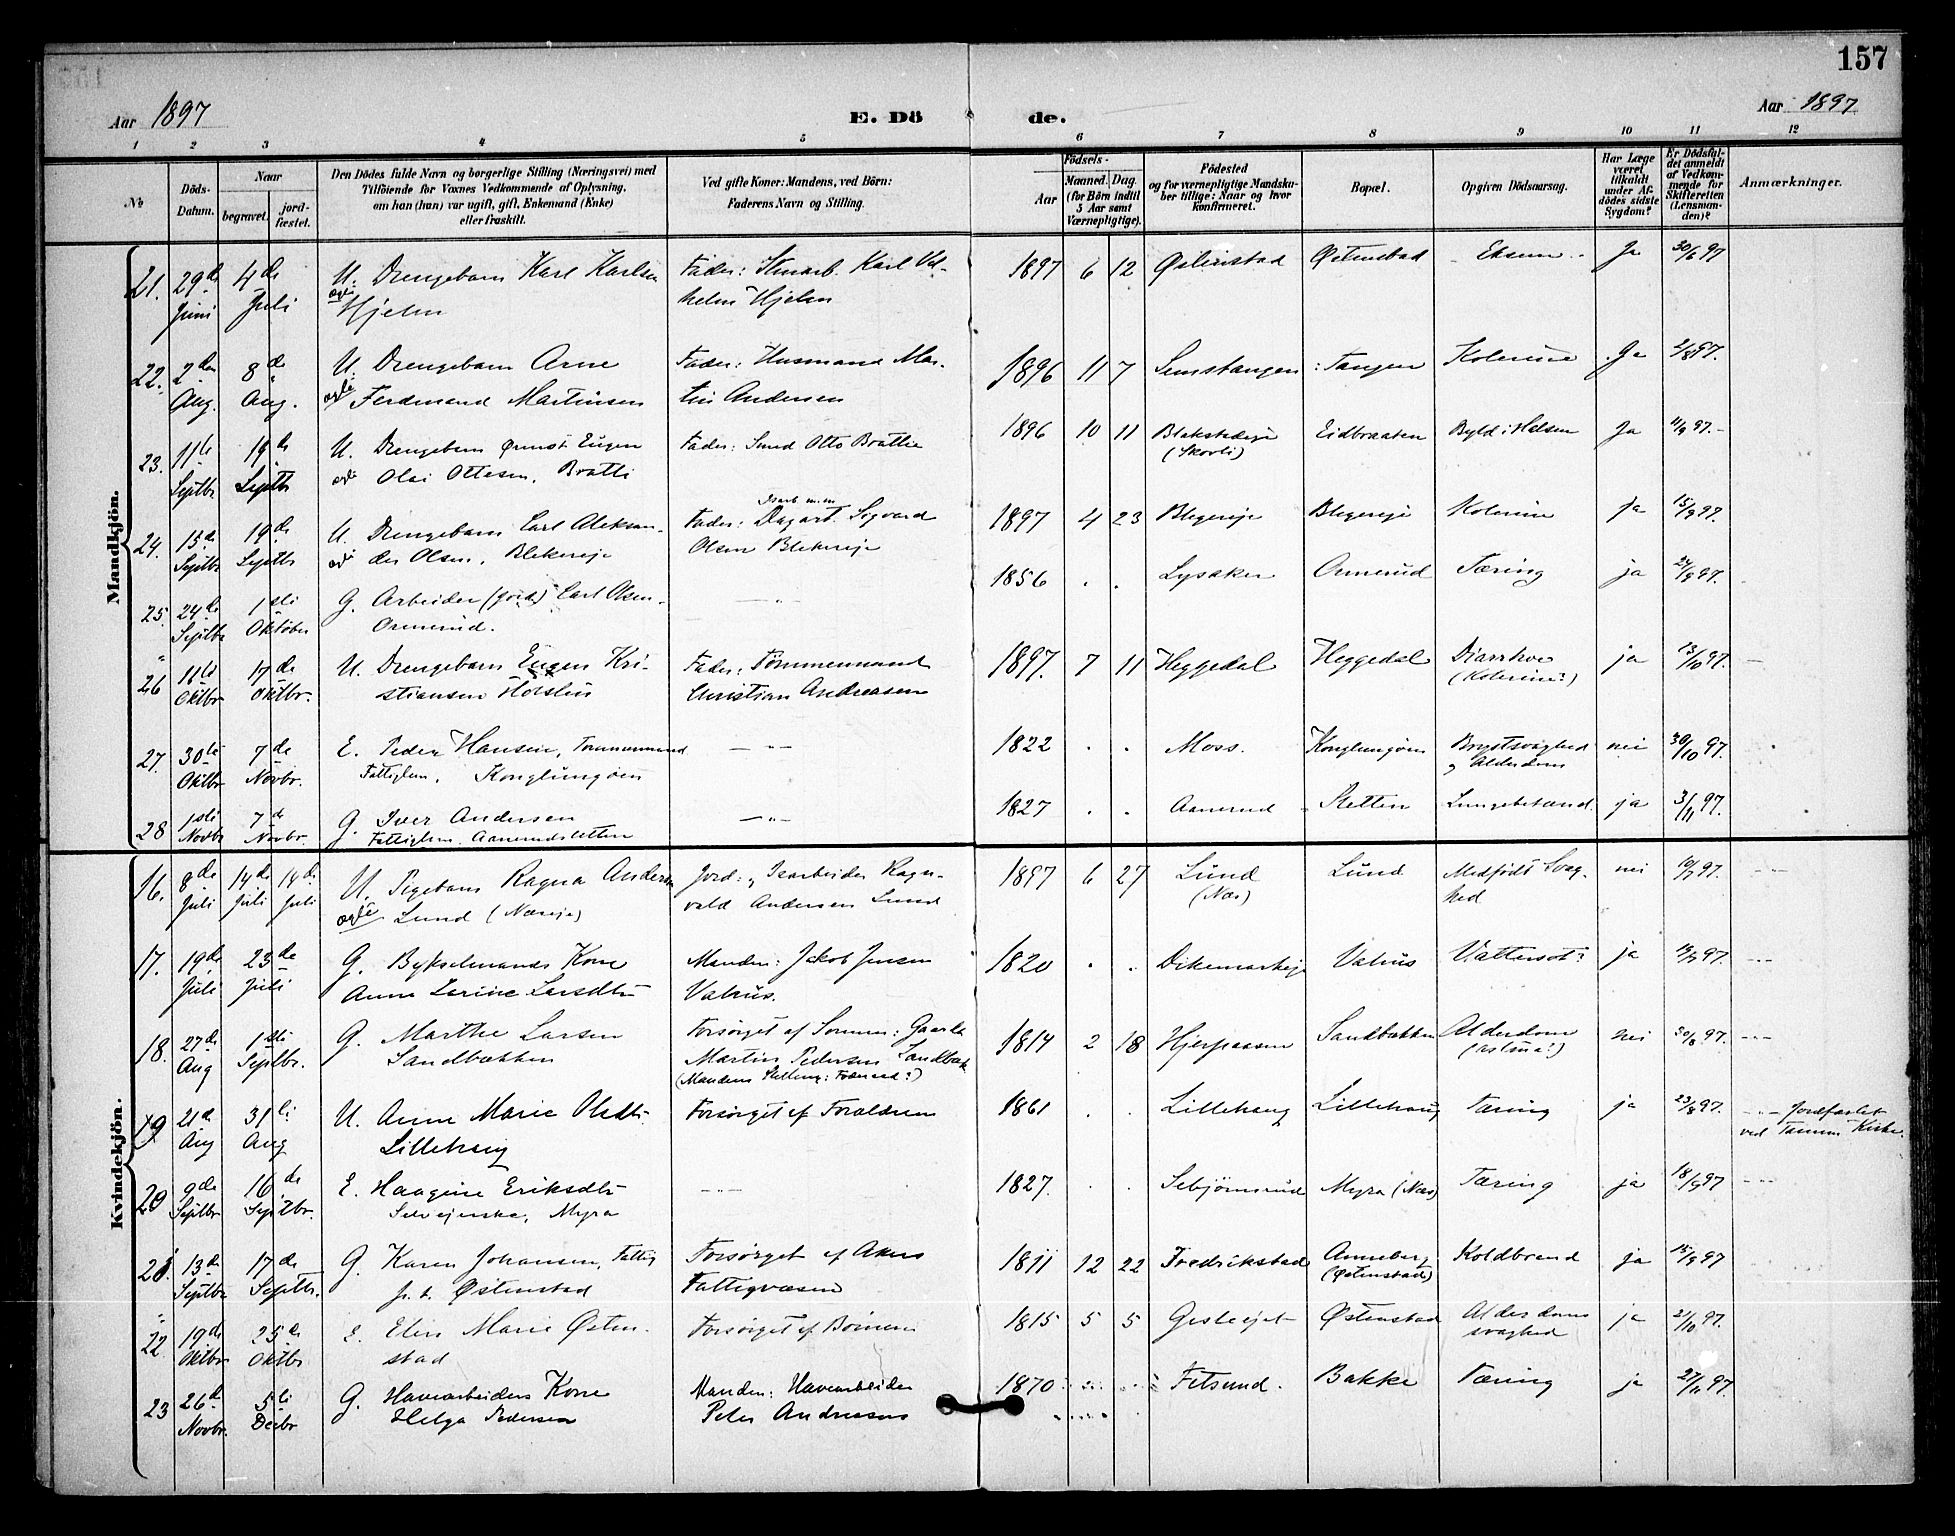 157
Aar 1897
E. Dö de.
Aar 1897
1 2 3 4 5 6 7 8 9 10 11 12
No
Döds-Datum.
Naar
begravet.
jord-fæstet.
Den Dödes fulde Navn og borgerlige Stilling (Næringsvei) med
Tilföiende for Voxnes Vedkommende af Oplysning,
om han (hun) var ugift, gift, Enkemand (Enke)
eller fraskilt.
Ved gifte Koner: Mandens, ved Börn:
Faderens Navn og Stilling.
Födsels-
Aar
Maaned. Dag.
(for Börn indtil
5 Aar samt
Værnepligtige).
Födested
og for værnepligtige Mandska-
ber tillige: Naar og hvor
konfirmeret.
Bopæl.
Opgiven Dödsaarsag.
Har Læge
været
tilkaldt
under Af-
dödes sidste
Sygdom?
Er Dödsfal-
det anmeldt
af Vedkom-
mende for
Skifteretten
(Lensman-
den)?
Anmærkninger.
Mandkjön.
21. 29de Juni 4de Juli U. Drengebarn Karl Karlsen Fader: Karl Vil- 1897 6 12 Østenstad Østenstad Eksem Ja 30/6 97
ægte Hjelm helm Hjelm
22. 2den Aug. 8de Aug. U. Drengebarn Arne Fader: Husmand Mar- 1896 11 7 Semstangen Tangen Kolerine Ja 2/8 97.
ægte Ferdinand Martinsen tin Andersen
23. 11te Septbr 19de Septbr U. Drengebarn Ernst Eugen Fader: Smed Otto Brattlie 1896 10 11 Blakstadeje Eidbraaten Byld i Halsen Ja 11/9 97.
ægte Olai Ottesen, Bratli (Skovli)
24. 15de Septbr 19de Septbr U. Drengebarn Carl Aleksan- Fader: Dagarb. Sigvard 1897 4 23 Blegereje Blegereje Kolerine Ja 15/9 97.
der Olsen, Blekereje Olsen Blekereje
25. 24de Septbr 1ste Oktober G. Arbeider (jord) Carl Olsen 1856 Lysaker Ormerud Tæring ja 24/9 97.
Ormerud.
26 11te Oktbr 17de Oktbr. U. Drengebarn Eugen Kri- Fader: Tømmermand 1897. 7 11 Heggedal Heggedal Diarrhoe ja 13/10 97.
stiansen Christian Andreasen (Kolerine?)
27. 30te Oktbr 7de Novbr. E. Peder Hansen, Tømmermand 1822 Moss. Konglungøen Brystsvaghed nei 30/10 97.
Fattiglem, Konglungøen og Alderdom
28 1ste Novbr 7de Novbr. G. Iver Andersen 1827 Aanerud Sletten Lungebetænd. ja 3/11 97.
Fattiglem. Aanerudsletten
Kvindekjön.
16. 8de Juli 14de Juli 14de Juli U. Pigebarn Ragna Andersen Jord- og Isarbeider Ragn- 1897 6 27 Lund Lund Medfødt Svag- nei 10/7 97.
ægte Lund (Næseje) vald Andersen Lund (Næs) hed
17. 19de Juli 23de Juli G. Bykselmands Kone Manden: Jakob Jensen 1820 Dikemarkeje Valhus Vattersot? ja 19/7 97.
Anne Larine Larsdtr Valhus.
18. 27de Aug 1ste Septbr. G. Marthe Larsen Forsørget af Sønnen: Gaardb. 1814 2 18 Hjerpaasen Sandbakken Alderdom nei 30/8 97.
Sandbækken Martin Pedersen Sandbæk (astma?)
(Mandens Stilling: Føderaad?)
19 21de Aug 31te Aug U. Anne Marie Olsdtr Forsørget af Forældrene 1861 Lillehaug Lillehaug Tæring ja 23/8 97. Jordfæstet
Lillehaug ved Tanum Kirke.
20 9de Septbr 16de Septbr. E. Haagine Eriksdtr 1827. Myra (Næs) Tæring ja 18/9 97
Selvejerske, Myra
21 13de Septbr 17de Septbr. G. Karen Johansen, Fattig Forsørget af Akers 1811 12 22 Fredrikstad Anneberg Koldbrand ja 15/9 97
p. t. Østenstad Fattigvæsen (Østenstad)
22 19de Oktbr 25de Oktbr E. Elin Marie Østen- Forsørget af Børnene 1815 5 5 Østenstad Alderdoms ja 21/10 97.
stad svaghed
23 26de Novbr. 5te Decbr G. Havearbeiders Kone Manden: Havearbeider 1870 Fetsund. Bakke Tæring ja 27/11 97.
Helga Pedersen Peter Andreassen